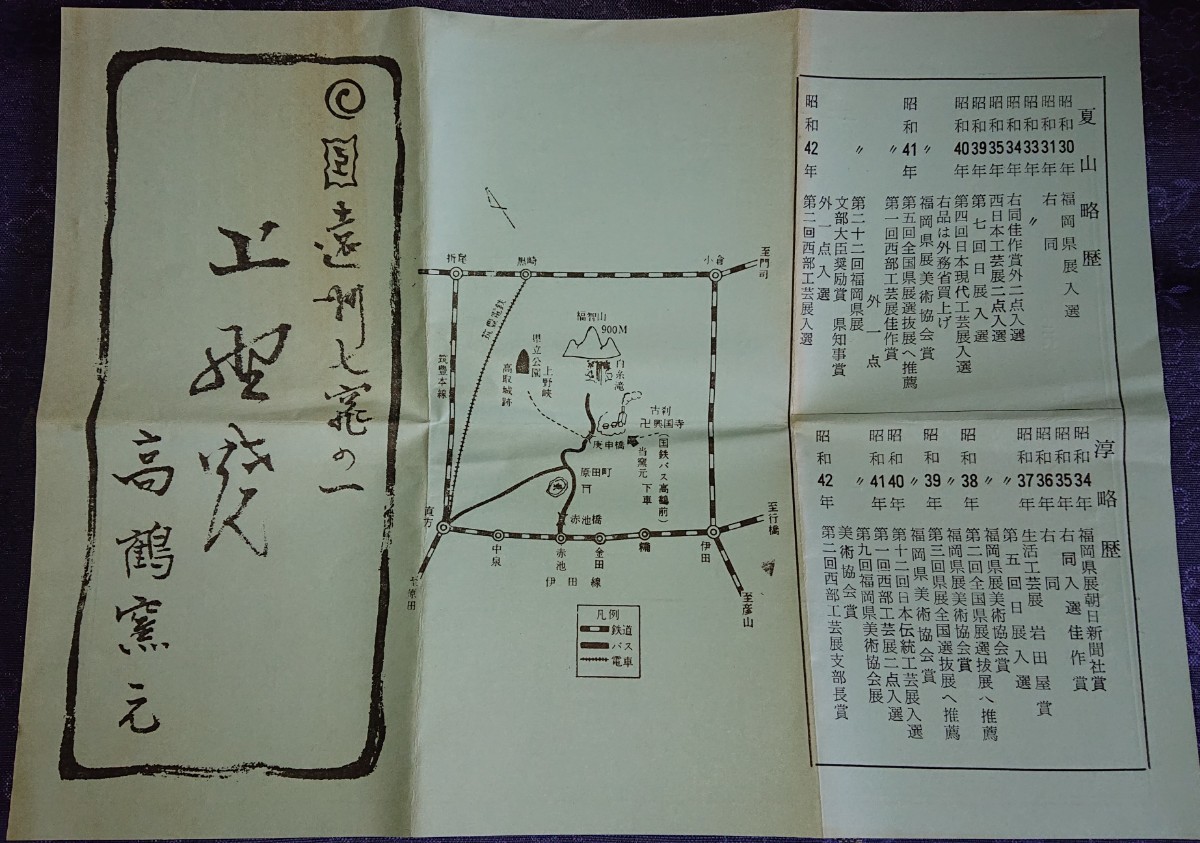 夏山略歴
昭和30年 福岡県展入選
昭和31年 右同
昭和33年 〃
昭和34年 右同佳作賞外二点入選
昭和35年 西日本工芸展二点入選
昭和39年 第七回日展入選
昭和40年 第四回日本現代工芸展入選
右品は外務省買上げ
〃 福岡県展美術協会賞
昭和41年 第五回全国県展選抜展へ推薦
〃 第一回西部工芸展佳作賞
外一点
〃 第二十二回福岡県展
文部大臣奨励賞 県知事賞
外一点入選
昭和42年 第二回西部工芸展入選
淳略歴
昭和34年 福岡県展朝日新聞社賞
昭和35年 右同入選佳作賞
昭和36年 右同
昭和37年 生活工芸展 岩田屋賞
〃 第五回日展入選
〃 福岡県展美術協会賞
昭和38年 第二回全国県展選抜展へ推薦
〃 福岡県展美術協会賞
昭和39年 第三回県展全国選抜展へ推薦
〃 福岡県美術協会賞
昭和40年 第十二回日本伝統工芸展入選
昭和41年 第一回西部工芸展二点入選
〃 第九回福岡県美術協会展
美術協会賞
昭和42年 第二回西部工芸展支部長賞
至門司
小倉
黒崎
折尾
筑豊電鉄
筑豊本線
福智山
900M
白糸滝
県立公園
上野峡
高取城跡
古刹
卍興国寺
庚申橋
当窯元
(国鉄バス高鶴前)
下車
原田町
赤池橋
至行橋
直方
中泉
赤池
金田
糒
伊田
伊田線
至原田
至彦山
凡例
鉄道
バス
電車
国
遠州七窯の一
上野焼
高鶴窯元